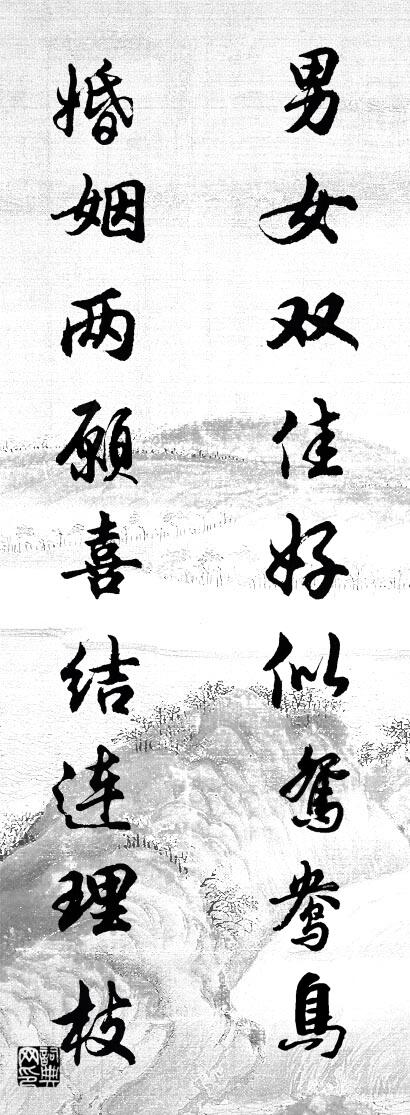 男女双佳好似鸳鸯鸟
婚姻两愿喜结连理枝
词典网印